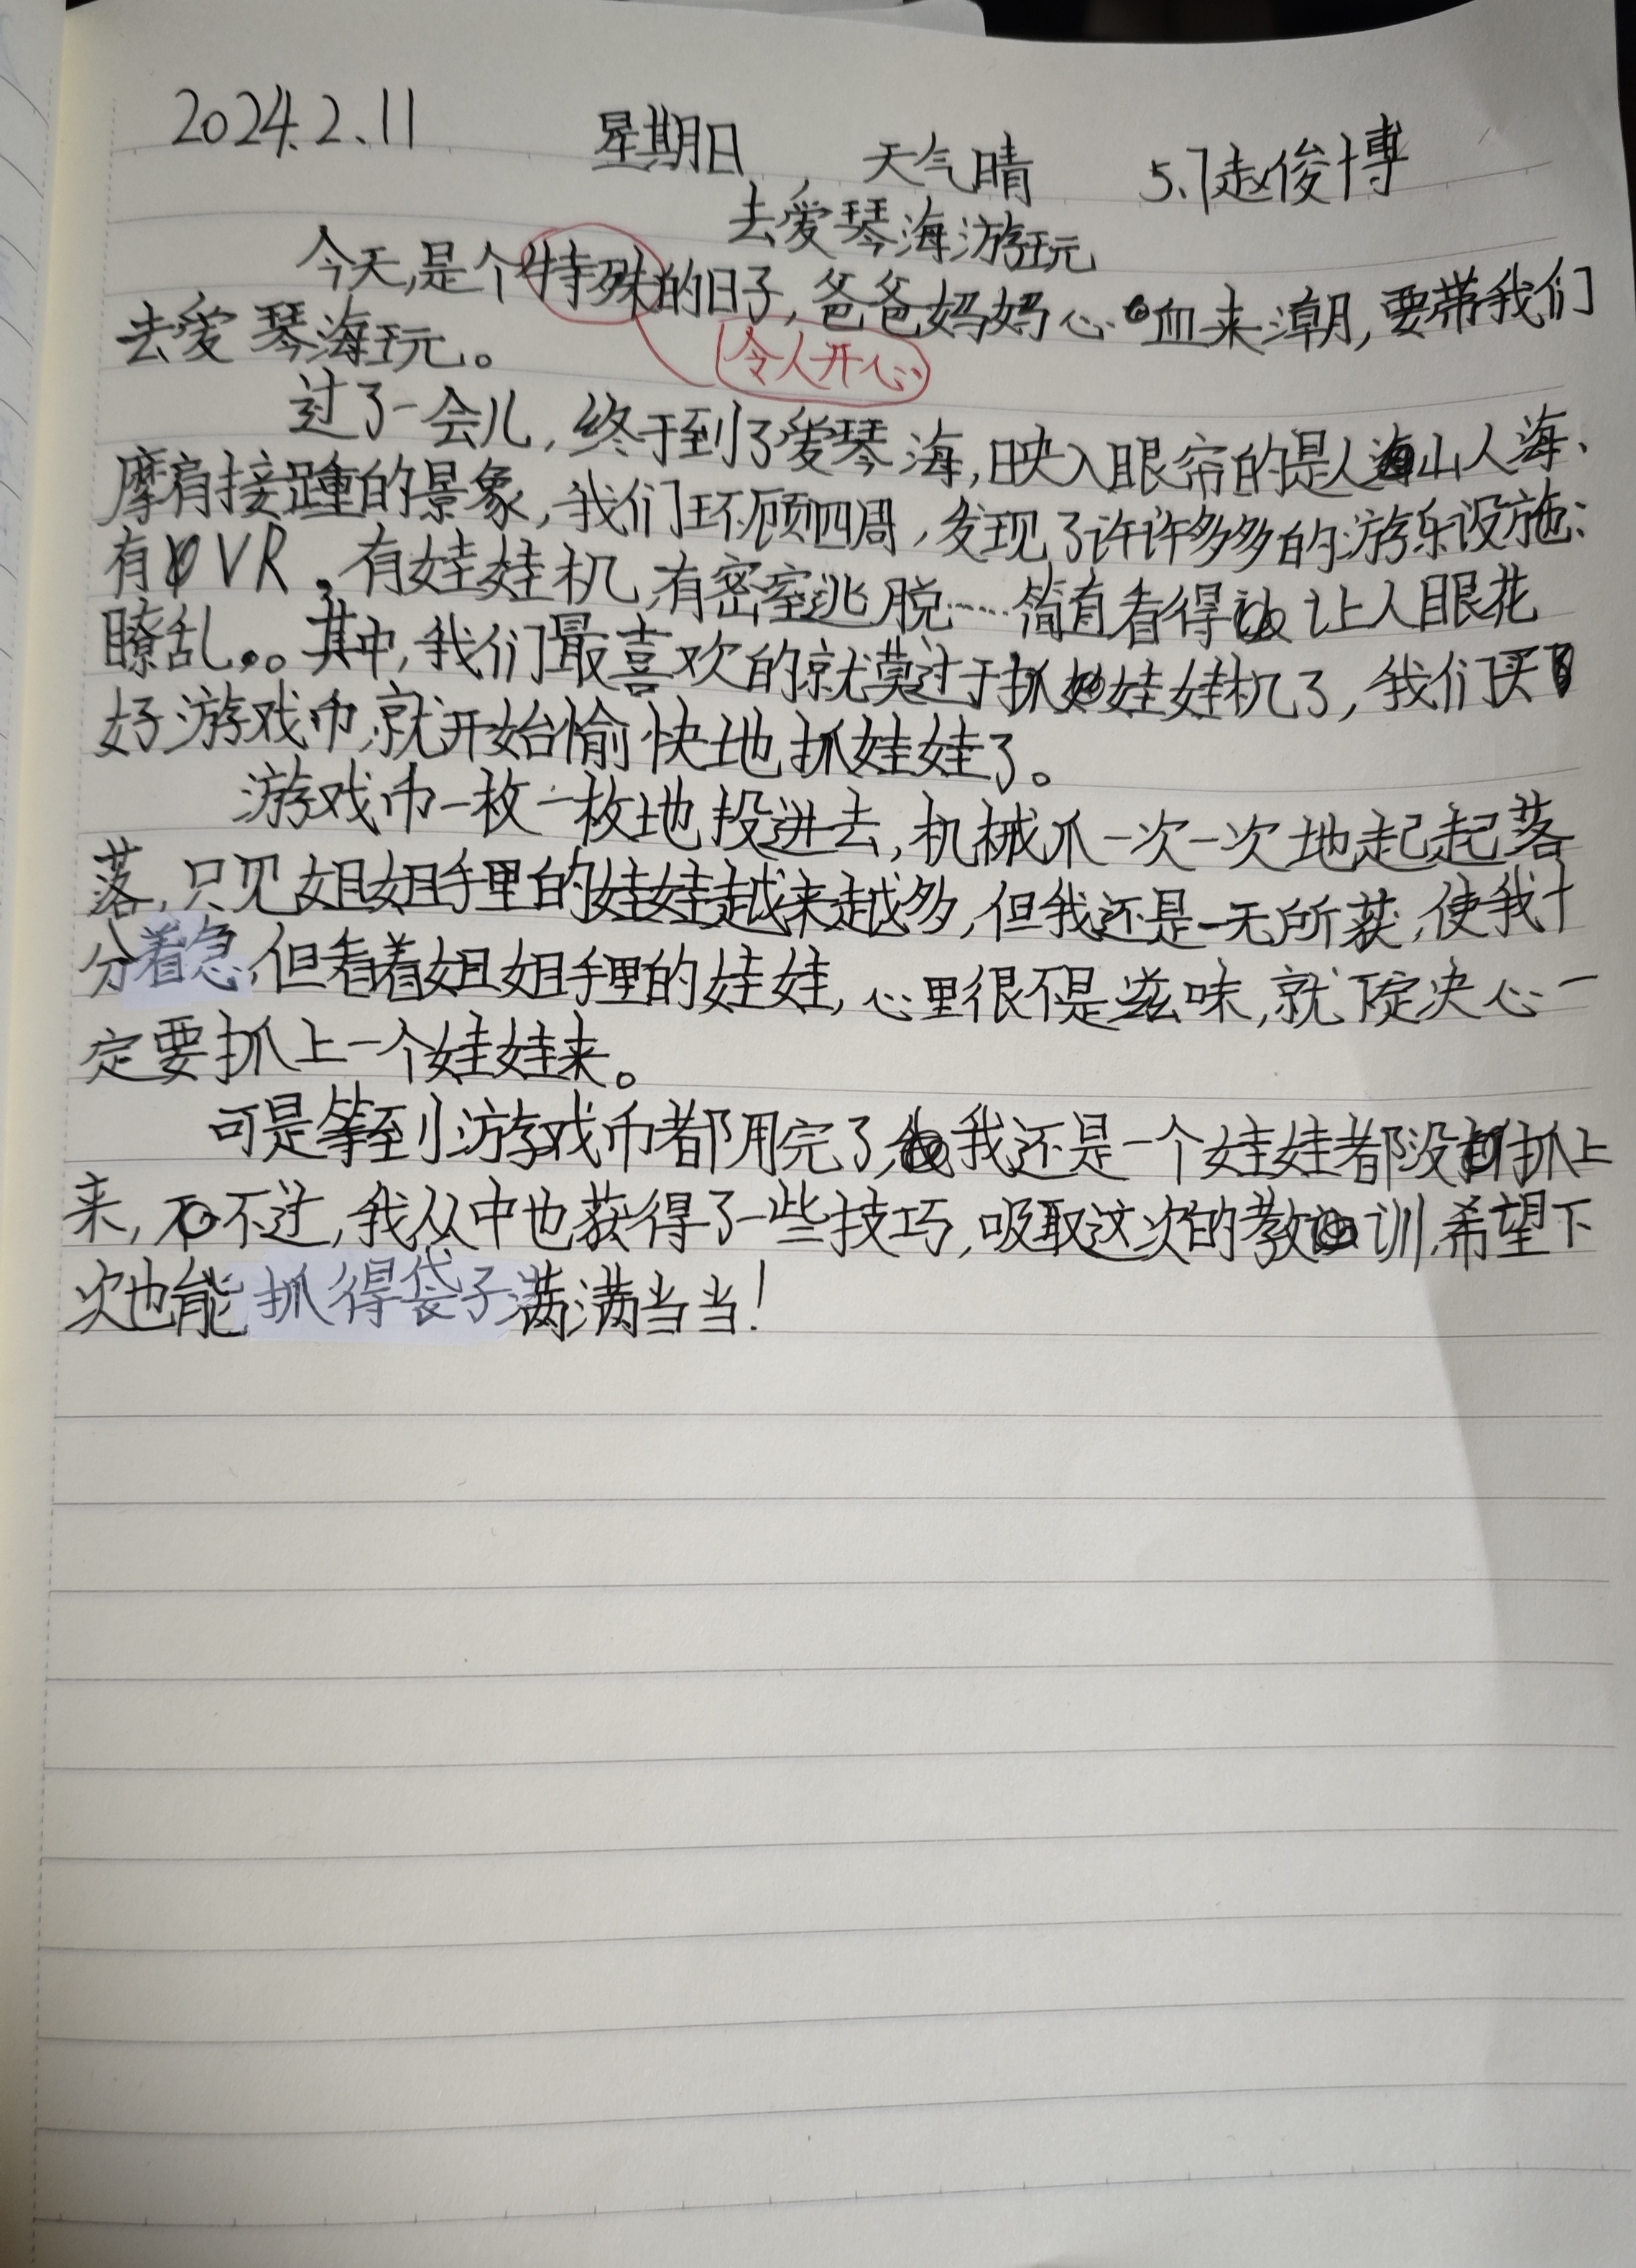 2024.2.11 星期日 天气晴 5.7赵俊博
去爱琴海游玩
今天,是个特殊的日子,爸爸妈妈心血来潮,要带我们
令人开心
去爱琴海玩。
过了一会儿,终于到了爱琴海,映入眼帘的是人山人海、
摩肩接踵的景象,我们环顾四周,发现了许许多多的游乐设施:
有VR,有娃娃机,有密室逃脱……简直看得让人眼花
瞭乱。其中,我们最喜欢的就莫过于抓娃娃机了,我们买
好游戏币,就开始愉快地抓娃娃了。
游戏币一枚一枚地投进去,机械爪一次一次地起起落
落,只见姐姐手里的娃娃越来越多,但我还是一无所获,使我十
分着急,但看着姐姐手里的娃娃,心里很不是滋味,就下定决心一
定要抓上一个娃娃来。
可是等到游戏币都用完了,我还是一个娃娃都没抓上
来,不过,我从中也获得了一些技巧,吸取这次的教训,希望下
次也能抓得袋子满满当当!